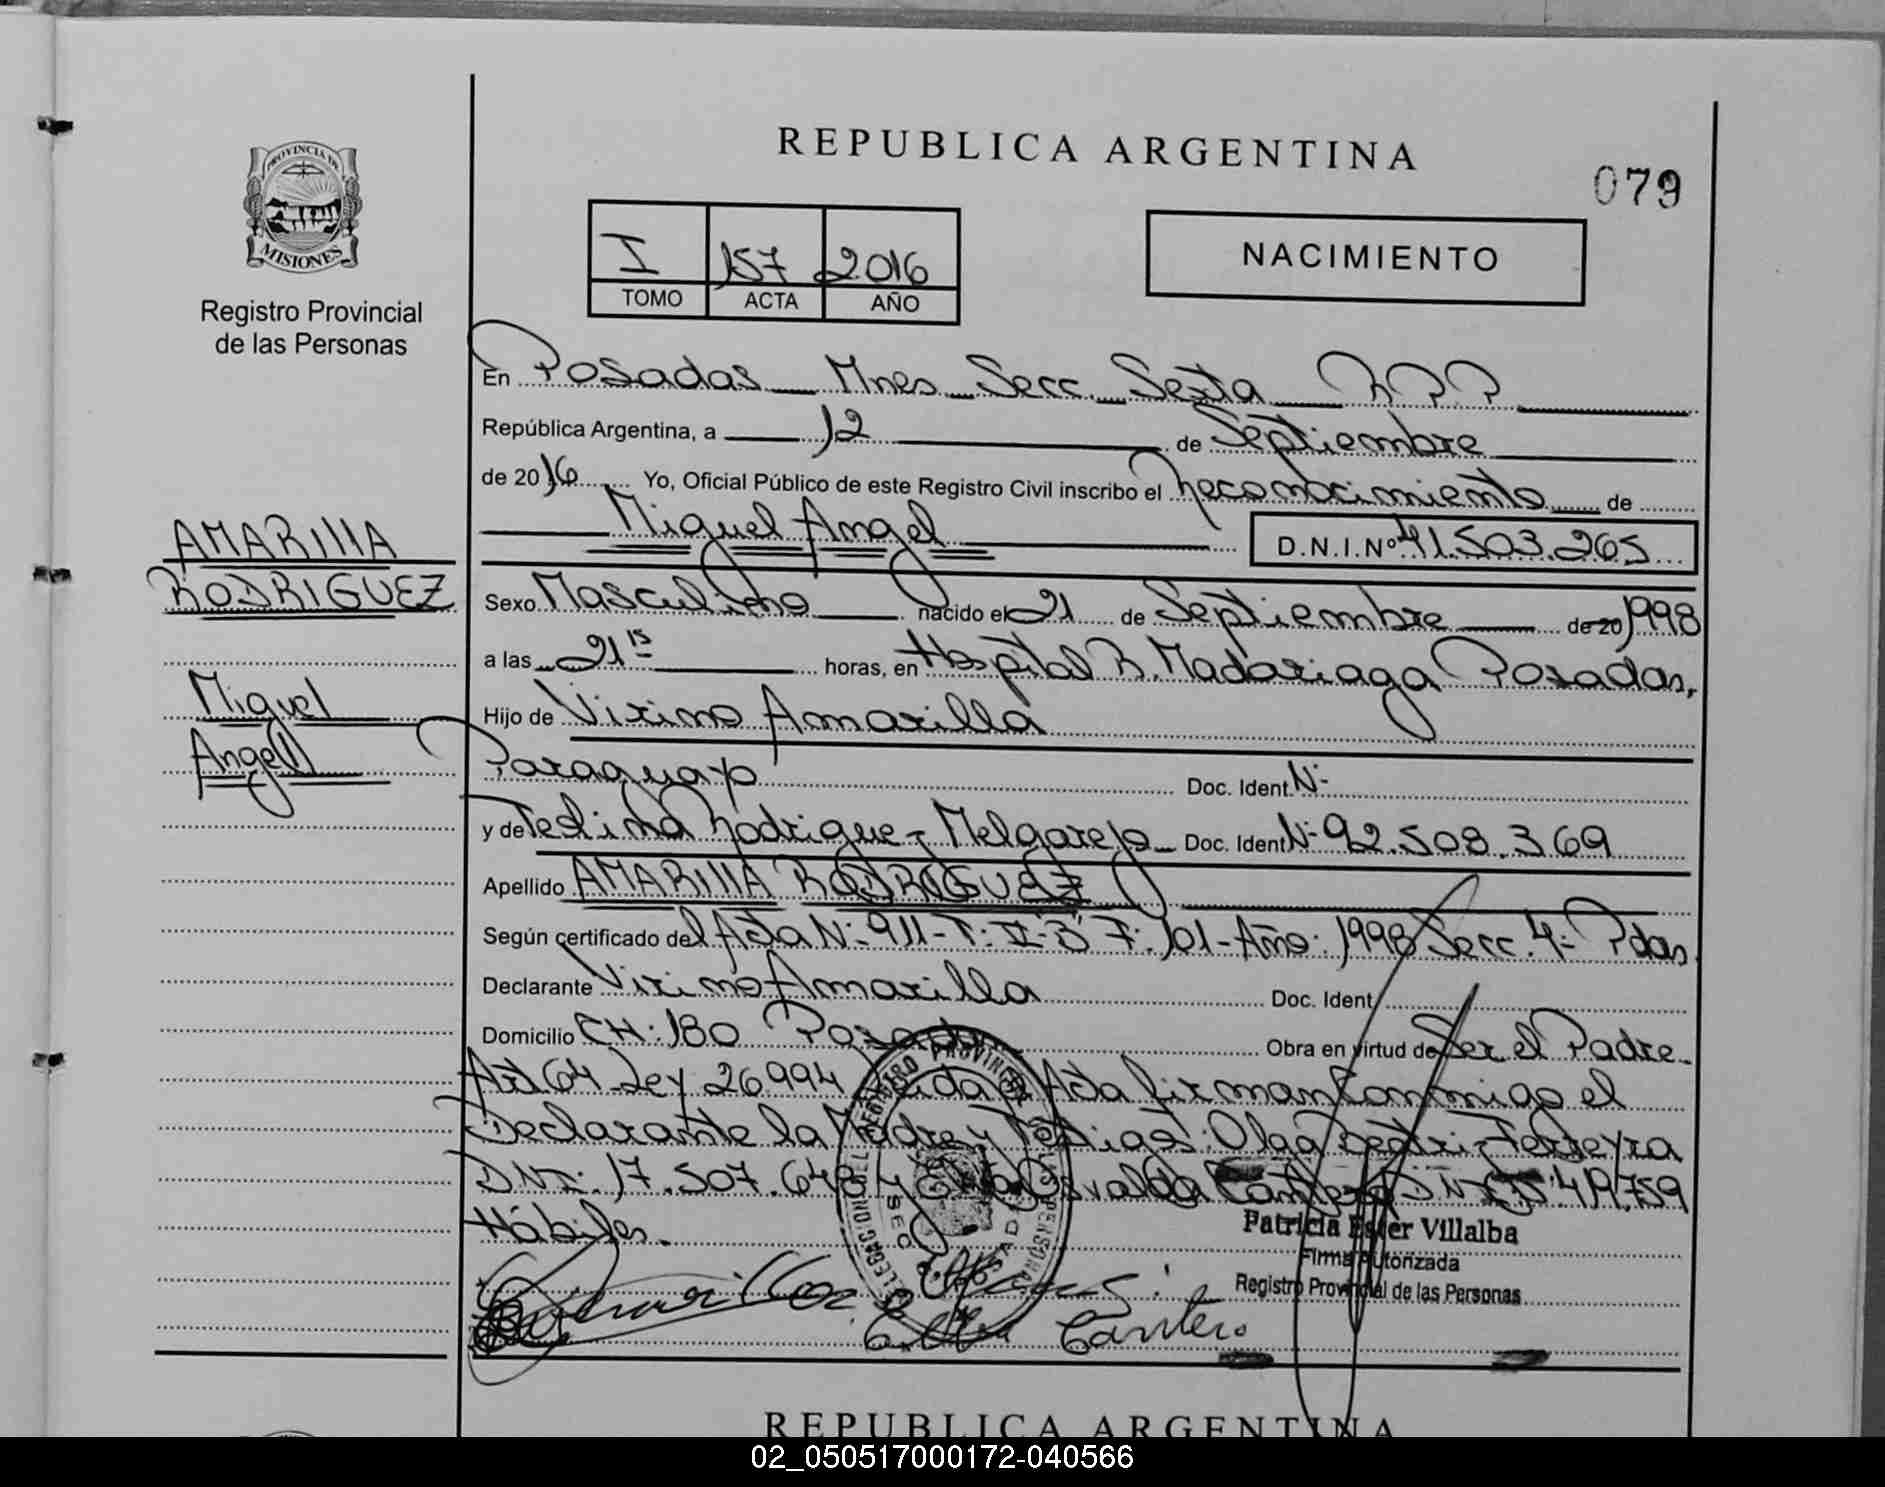 REPUBLICA ARGENTINA
079
PROVINCIA DE
MISIONES
Registro Provincial
de las Personas
I 157 2016
TOMO ACTA AÑO
NACIMIENTO
En Posadas Mnes Secc. Sexta R P P
República Argentina, a 12 de Septiembre
de 2016 Yo, Oficial Público de este Registro Civil inscribo el reconocimiento de
Miguel Angel D.N.I.Nº 41.503.265
AMARILLA
RODRIGUEZ
Miguel
Angel
Sexo Masculino nacido el 21 de Septiembre de 20 1998
a las 21 15 horas, en Hospital R. Madariaga Posadas,
Hijo de Virino Amarilla
Paraguayo Doc. Ident. Nº
y de Rodriguez Melgarejo Doc. Ident Nº 92.508.369
Apellido AMARILLA RODRIGUEZ
Según certificado del Acta Nº 911-T: II-B F: 101-Año: 1998 Secc. 4º Pdas.
Declarante Virino Amarilla Doc. Ident
Domicilio CH: 180 Posadas Obra en virtud de Ser el Padre.
Art 64 Ley 26.994 Acta firman Conmigo el
Declarante la Madre y Testigos: Olga Beatriz Ferreyra
DNI: 17.507.648 y Osvaldo Cantero DNI
Hábiles.
Patricia Ester Villalba
Firma Autorizada
Registro Provincial de las Personas
Amarilla
Cantero
REPUBLICA ARGENTINA
02_050517000172-040566